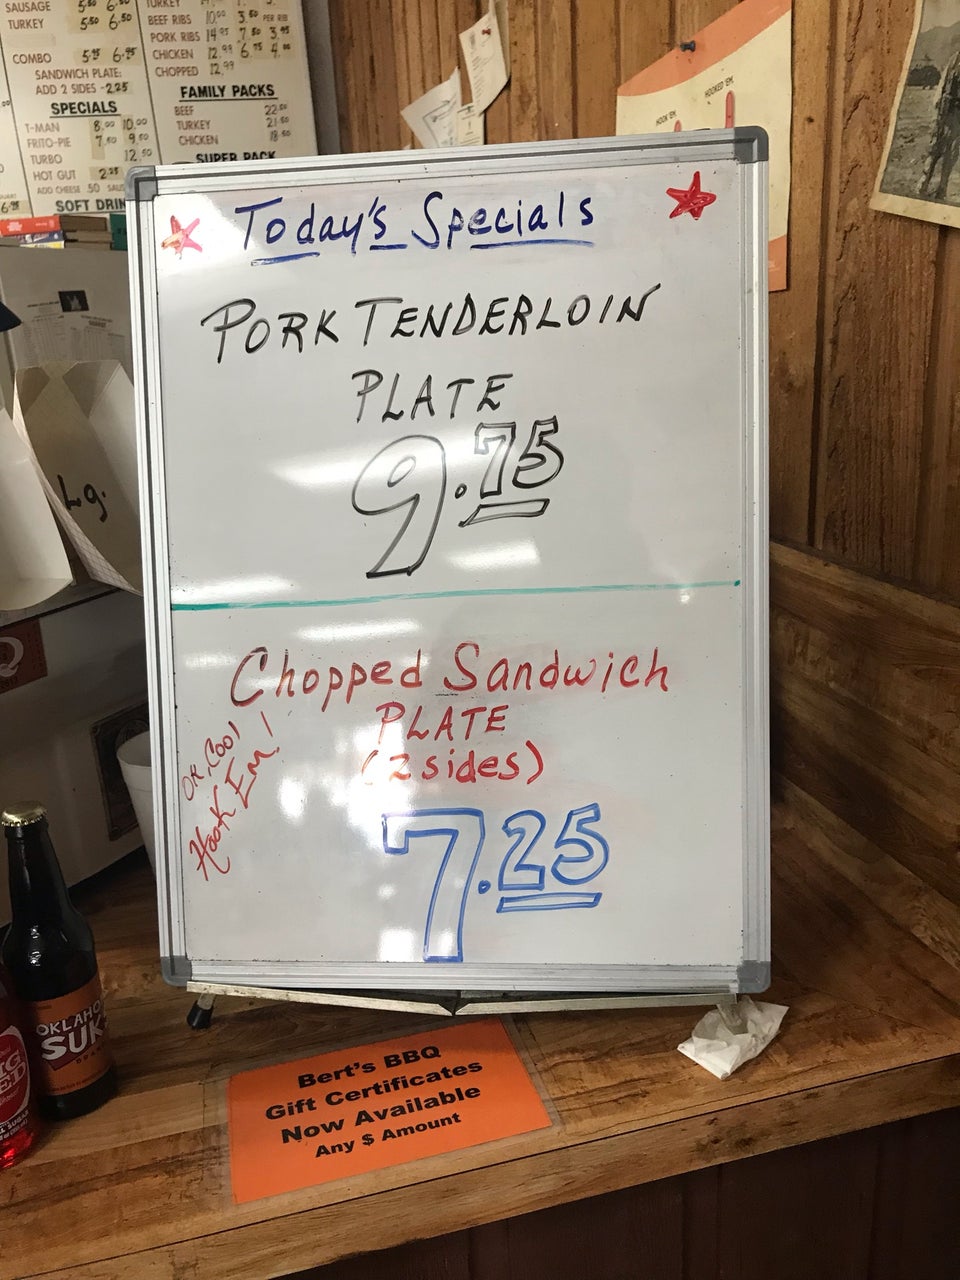 SAUSAGE 5.50 6.50
TURKEY 5.50 6.50
COMBO 5.95 6.95
SANDWICH PLATE:
ADD 2 SIDES - 2.25
SPECIALS
T-MAN 8.00 10.00
FRITO-PIE 7.50 9.50
TURBO 12.50
HOT GUT 2.25
ADD CHEESE .50
SOFT DRIN
TURKEY PER RIB
BEEF RIBS 10.00 3.50
PORK RIBS 14.95 7.50 3.95
CHICKEN 12.99 6.75 4.00
CHOPPED 12.99
FAMILY PACKS
BEEF 22.00
TURKEY 21.50
CHICKEN 18.50
SUPER PACK
HOOK 'EM
HOOKED 'EM
Today's Specials
PORK TENDERLOIN
PLATE
9.75
Chopped Sandwich
PLATE
(2 sides)
7.25
Hook Em!
Lg.
Q
OKLAHO
SUK
Bert's BBQ
Gift Certificates
Now Available
Any $ Amount